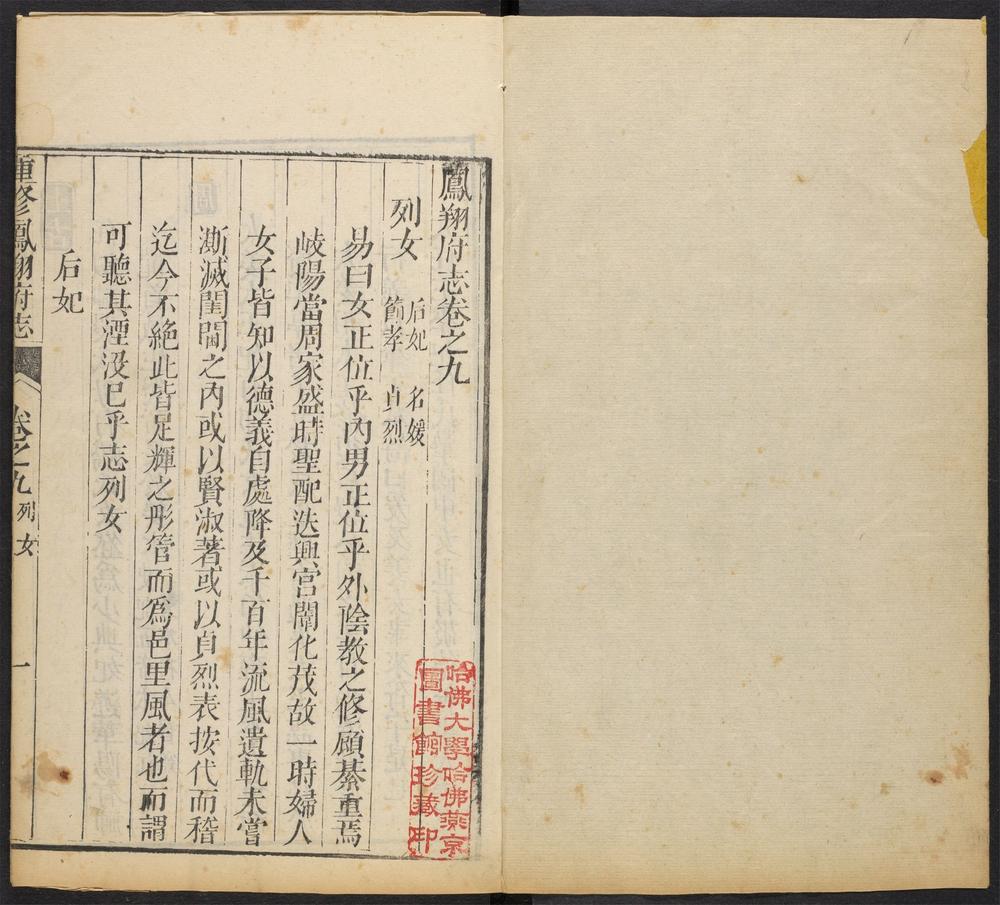 鳳翔府志卷之九
列女 后妃 名媛
節孝 貞烈
易曰女正位乎內男正位乎外陰教之修顧綦重焉
岐陽當周家盛時聖配迭興宮闈化茂故一時婦人
女子皆知以德義自處降及千百年流風遺軌未嘗
澌滅閨閫之內或以賢淑著或以貞烈表按代而稽
迄今不絶此皆足輝之彤管而爲邑里風者也而謂
可聽其湮没巳乎志列女
后妃
重修鳳翔府志 卷之九 列女 一
哈佛大學哈佛燕京
圖書館珍藏印